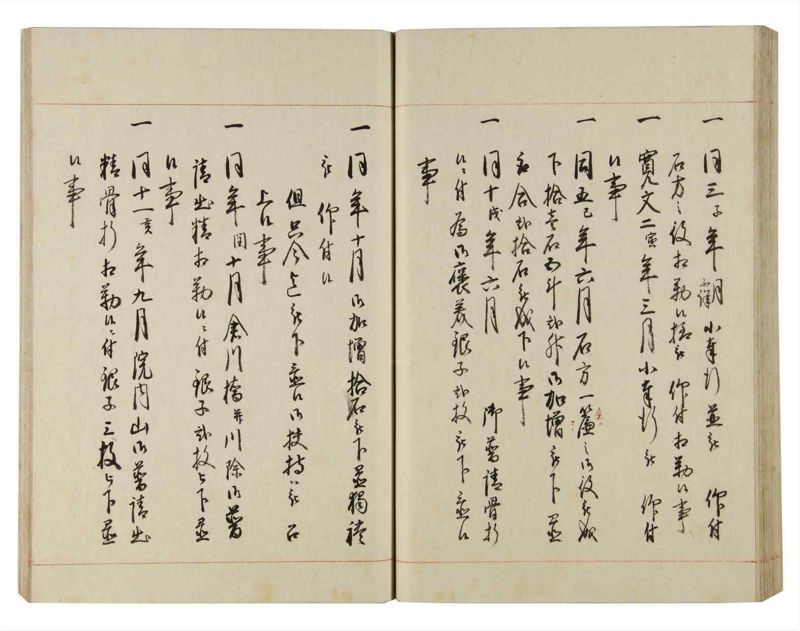 一 同三子年 月 小奉行並被 仰付
石方之役相勤候様被 仰付相勤候事
一 寛文二寅年三月小奉行被 仰付
候事
一 同五巳年六月石方一簾之御役被成
下拾壱石四斗 御加増被下並
石合弐拾石被成下候事
一 同十戌年六月 御普請骨折
候ニ付為御褒美銀子弐枚被下並候
事
一 同年十月御加増拾石被下並独礼
被 仰付候
但只今迄被下並候御扶持ハ被召
上候事
一 同年閏十月倉川橋并川除御普
請出精相勤候ニ付銀子弐枚被下並
候事
一 同十一亥年九月院内山御普請出
精骨折相勤候ニ付銀子三枚被下並
候事